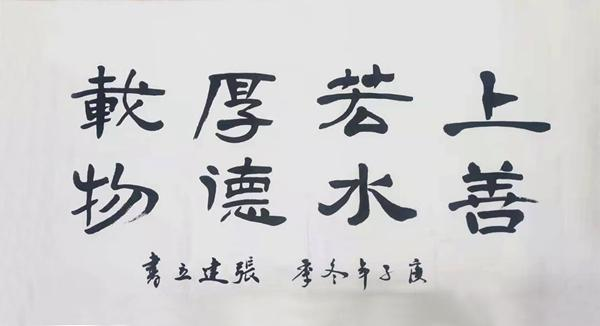 上善
若水
厚德
載物
庚子年冬季 張建立書